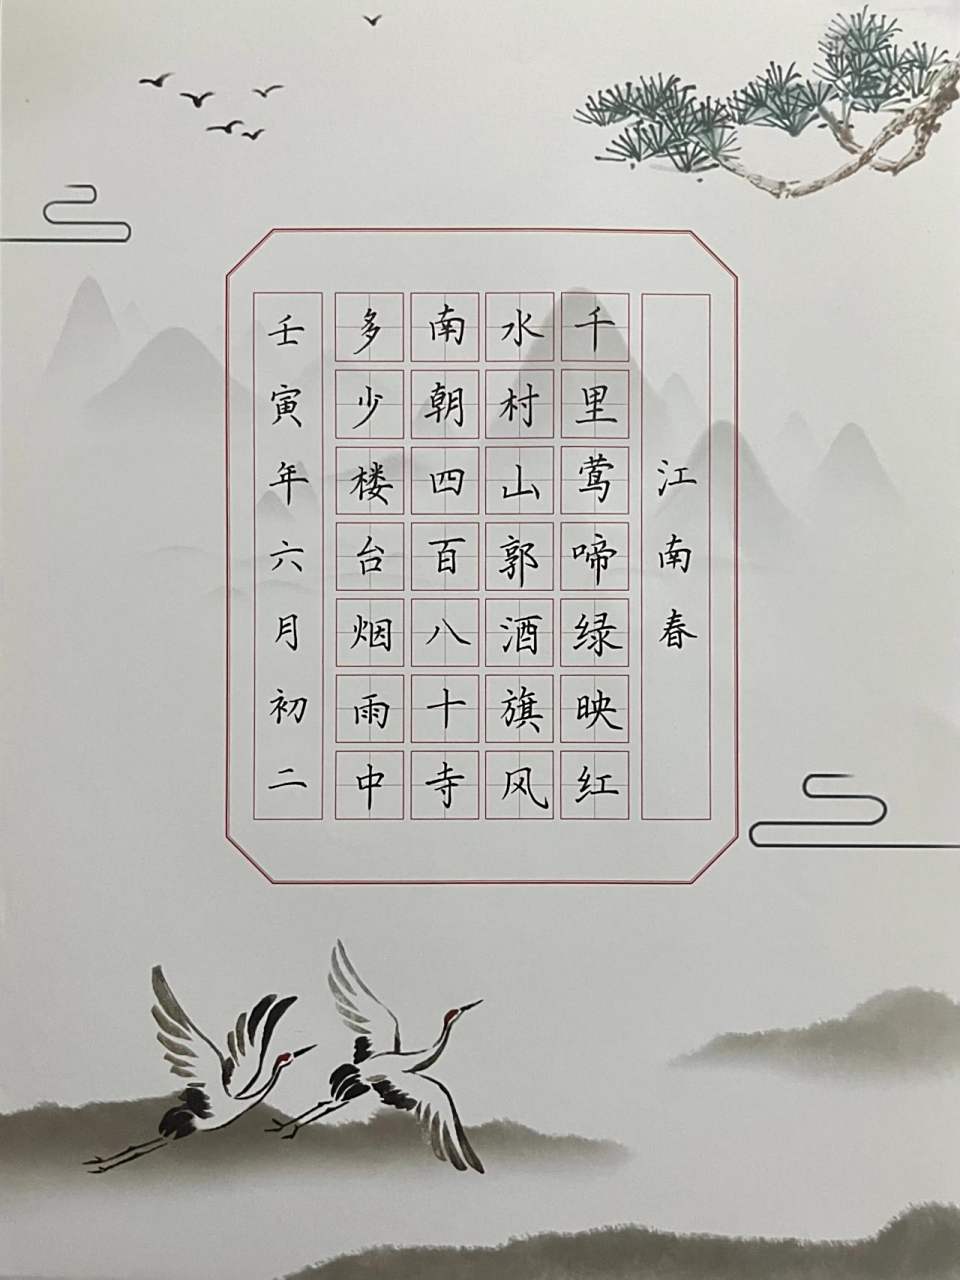 江南春
千里莺啼绿映红
水村山郭酒旗风
南朝四百八十寺
多少楼台烟雨中
壬寅年六月初二